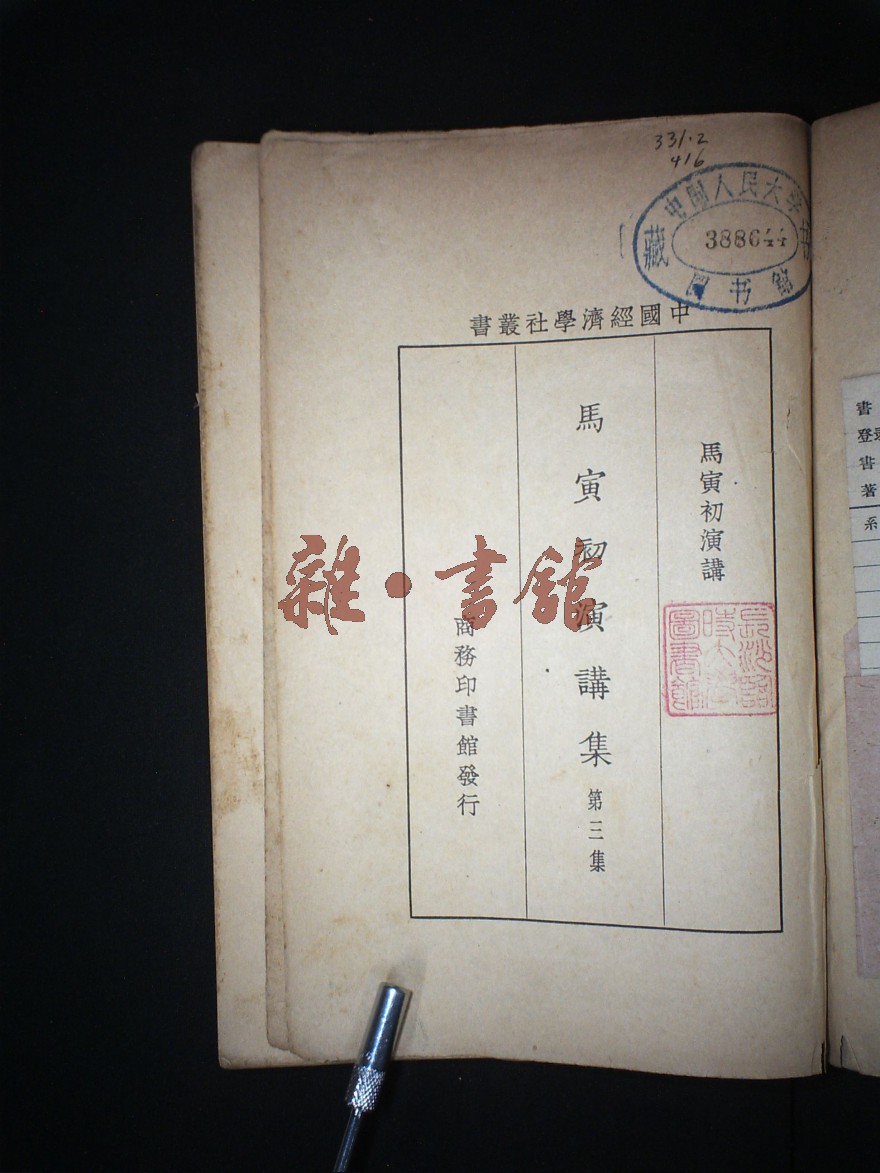 331.2
416
中国人民大学
388644
藏 书
图书馆
中國經濟學社叢書
馬寅初演講
馬寅初演講集 第三集
商務印書館發行
雜·書館
圖書館
書
登录
書
著
系